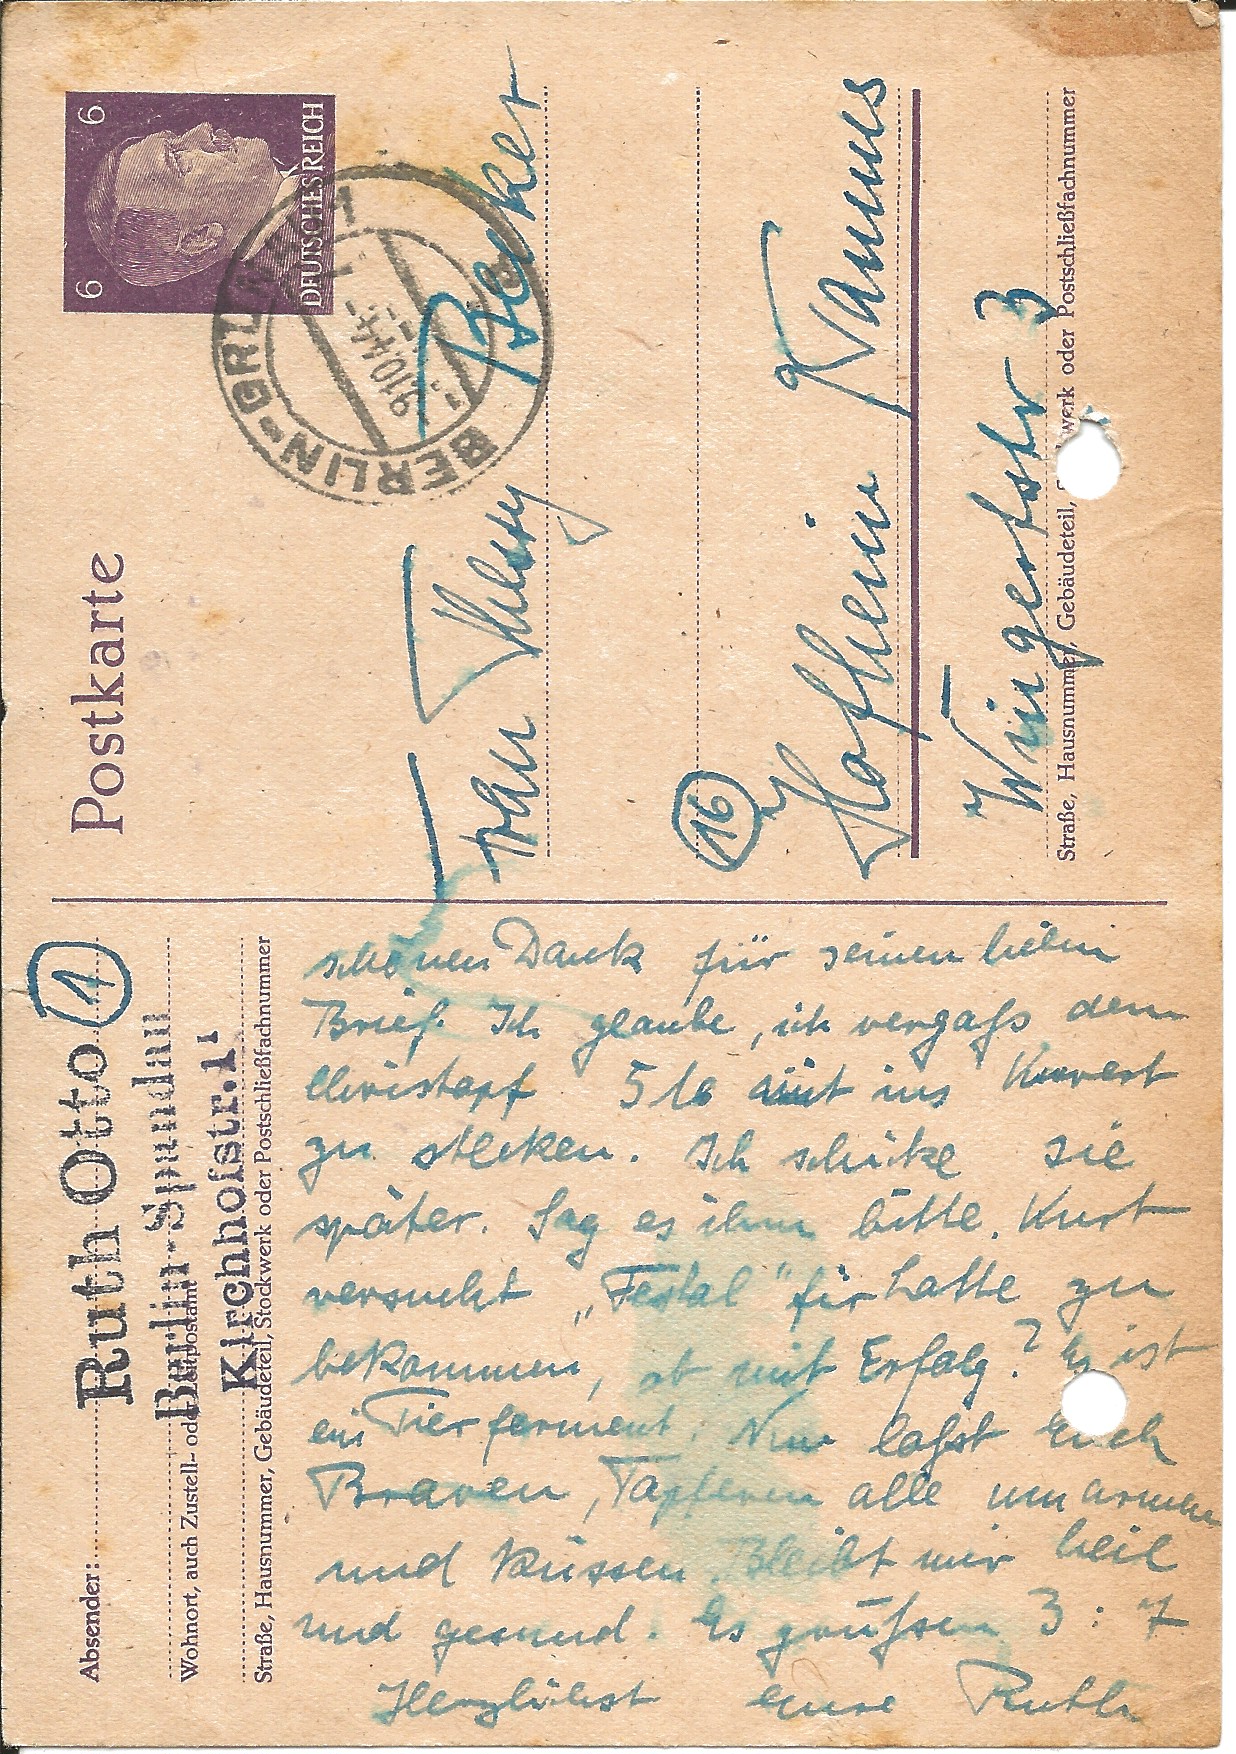 Absender:
Ruth Otto
1
Berlin-Spandau
Wohnort, auch Zustell- oder Leitpostamt
Kirchhofstr. 1
Straße, Hausnummer, Gebäudeteil, Stockwerk oder Postschließfachnummer
schönen Dank für seinen lieben
Brief. Ich glaube, ich vergaß dem
Christoph 5 M mit ins Kuvert
zu stecken. Ich schicke sie
später. Sag es ihm bitte. Kurt
versucht „Festal" für Lotte zu
bekommen, ob mit Erfolg? Es ist
ein Tierferment. Nun laßt Euch
Braven, Tapferen alle umarmen
und küssen. Bleibt mir heil
und gesund. Es grüßen 3:7
Herzlichst eure Ruth
Postkarte
6 6
DEUTSCHES REICH
BERLIN-GRUNEW 1
9.10.44
Frau Thesy Becker
16
Hofheim Taunus
Wingertstr 3
Straße, Hausnummer, Gebäudeteil, Stockwerk oder Postschließfachnummer